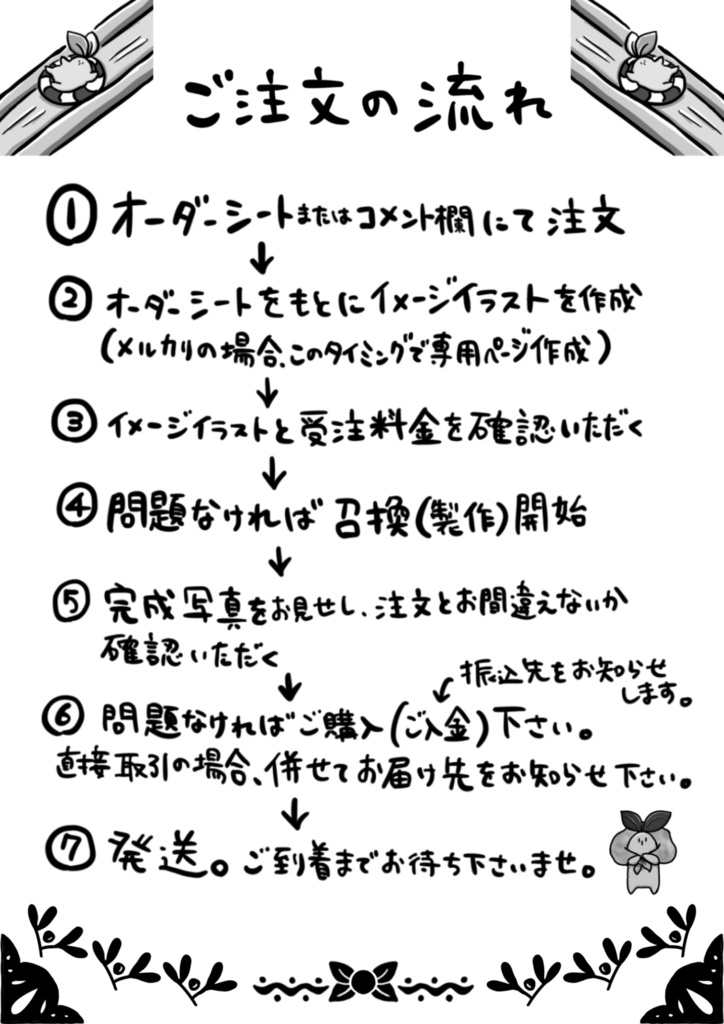 ご注文の流れ
① オーダーシートまたはコメント欄にて注文
↓
② オーダーシートをもとにイメージイラストを作成
(メルカリの場合、このタイミングで専用ページ作成)
↓
③ イメージイラストと受注料金を確認いただく
↓
④ 問題なければ召換(製作)開始
↓
⑤ 完成写真をお見せし、注文とお間違えないか
確認いただく
↓
振込先をお知らせ
します。
⑥ 問題なければご購入(ご入金)下さい。
直接取引の場合、併せてお届け先をお知らせ下さい。
↓
⑦ 発送。ご到着までお待ち下さいませ。